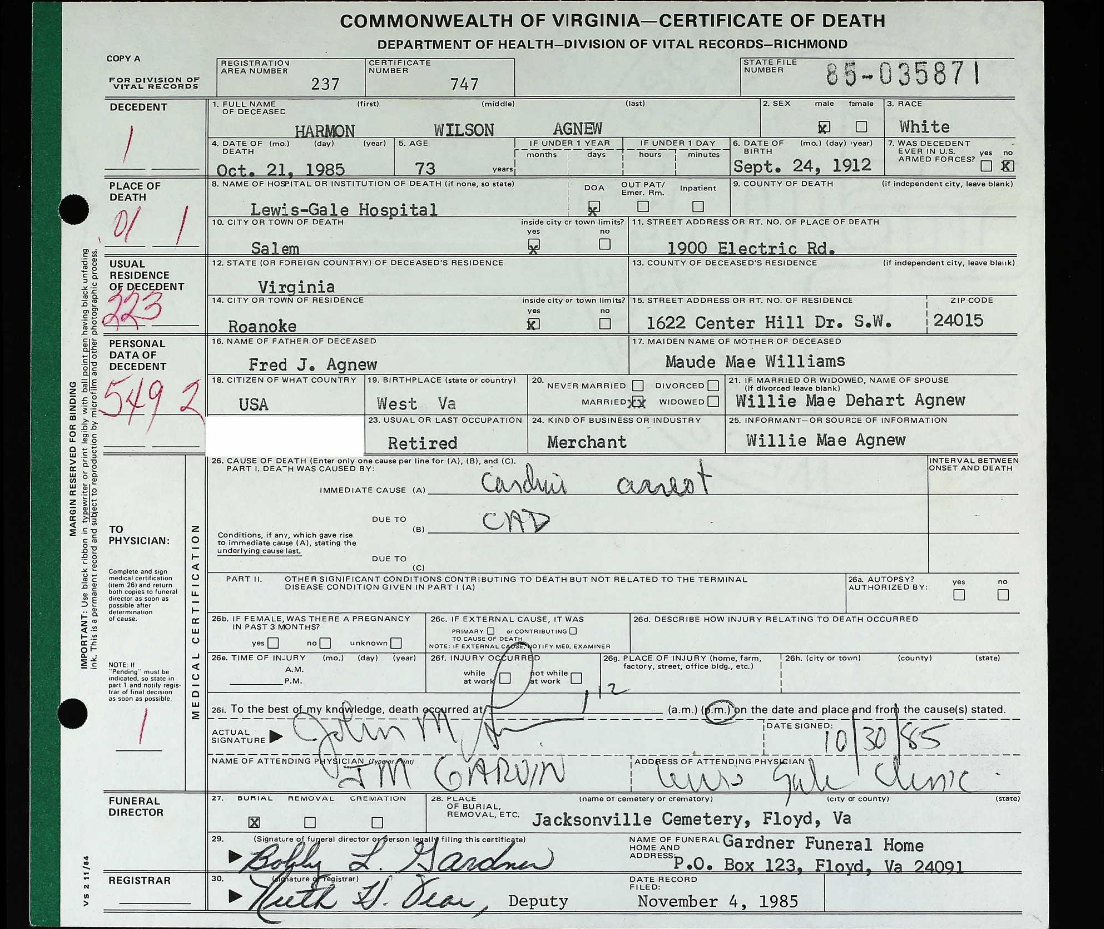 COMMONWEALTH OF VIRGINIA—CERTIFICATE OF DEATH
DEPARTMENT OF HEALTH—DIVISION OF VITAL RECORDS—RICHMOND
COPY A
FOR DIVISION OF VITAL RECORDS
REGISTRATION AREA NUMBER 237
CERTIFICATE NUMBER 747
STATE FILE NUMBER 85-035871
DECEDENT
1
1. FULL NAME OF DECEASED (first) (middle) (last)
HARMON WILSON AGNEW
2. SEX male female
x
3. RACE
White
4. DATE OF DEATH (mo.) (day) (year)
Oct. 21, 1985
5. AGE
73 years
IF UNDER 1 YEAR months days
IF UNDER 1 DAY hours minutes
6. DATE OF BIRTH (mo.) (day) (year)
Sept. 24, 1912
7. WAS DECEDENT EVER IN U.S. ARMED FORCES? yes no
x
PLACE OF DEATH
01 1
8. NAME OF HOSPITAL OR INSTITUTION OF DEATH (if none, so state)
Lewis-Gale Hospital
DOA OUT PAT/ Emer. Rm. Inpatient
x
9. COUNTY OF DEATH (if independent city, leave blank)
10. CITY OR TOWN OF DEATH
Salem
inside city or town limits? yes no
x
11. STREET ADDRESS OR RT. NO. OF PLACE OF DEATH
1900 Electric Rd.
USUAL RESIDENCE OF DECEDENT
223
12. STATE (OR FOREIGN COUNTRY) OF DECEASED'S RESIDENCE
Virginia
13. COUNTY OF DECEASED'S RESIDENCE (if independent city, leave blank)
14. CITY OR TOWN OF RESIDENCE
Roanoke
inside city or town limits? yes no
x
15. STREET ADDRESS OR RT. NO. OF RESIDENCE
1622 Center Hill Dr. S.W.
ZIP CODE
24015
PERSONAL DATA OF DECEDENT
549 2
16. NAME OF FATHER OF DECEASED
Fred J. Agnew
17. MAIDEN NAME OF MOTHER OF DECEASED
Maude Mae Williams
18. CITIZEN OF WHAT COUNTRY
USA
19. BIRTHPLACE (state or country)
West Va
20. NEVER MARRIED DIVORCED
MARRIED xx WIDOWED
21. IF MARRIED OR WIDOWED, NAME OF SPOUSE (if divorced leave blank)
Willie Mae Dehart Agnew
23. USUAL OR LAST OCCUPATION
Retired
24. KIND OF BUSINESS OR INDUSTRY
Merchant
25. INFORMANT—OR SOURCE OF INFORMATION
Willie Mae Agnew
MARGIN RESERVED FOR BINDING
IMPORTANT: Use black ribbon in typewriter or print legibly with ball point pen having black unfading ink. This is a permanent record and subject to reproduction by microfilm and other photographic process.
TO PHYSICIAN:
Complete and sign medical certification (item 26) and return both copies to funeral director as soon as possible after determination of cause.
NOTE: If "Pending" must be indicated, so state in part 1 and notify registrar of final decision as soon as possible.
1
MEDICAL CERTIFICATION
26. CAUSE OF DEATH (Enter only one cause per line for (A), (B), and (C).
PART I. DEATH WAS CAUSED BY:
INTERVAL BETWEEN ONSET AND DEATH
IMMEDIATE CAUSE (A) Cardiac arrest
DUE TO (B) CAD
Conditions, if any, which gave rise to immediate cause (A), stating the underlying cause last.
DUE TO (C)
PART II. OTHER SIGNIFICANT CONDITIONS CONTRIBUTING TO DEATH BUT NOT RELATED TO THE TERMINAL DISEASE CONDITION GIVEN IN PART I (A)
26a. AUTOPSY? AUTHORIZED BY: yes no
26b. IF FEMALE, WAS THERE A PREGNANCY IN PAST 3 MONTHS?
yes no unknown
26c. IF EXTERNAL CAUSE, IT WAS
PRIMARY or CONTRIBUTING
TO CAUSE OF DEATH
NOTE: IF EXTERNAL CAUSE, NOTIFY MED. EXAMINER
26d. DESCRIBE HOW INJURY RELATING TO DEATH OCCURRED
26e. TIME OF INJURY (mo.) (day) (year)
A.M.
P.M.
26f. INJURY OCCURRED
while at work not while at work
26g. PLACE OF INJURY (home, farm, factory, street, office bldg., etc.)
26h. (city or town) (county) (state)
26i. To the best of my knowledge, death occurred at (a.m.) (p.m.) on the date and place and from the cause(s) stated.
ACTUAL SIGNATURE John M
DATE SIGNED: 10/30/85
NAME OF ATTENDING PHYSICIAN (Type or Print)
JM GARVIN
ADDRESS OF ATTENDING PHYSICIAN
Lewis Gale Clinic
FUNERAL DIRECTOR
27. BURIAL REMOVAL CREMATION
x
28. PLACE OF BURIAL, REMOVAL, ETC. (name of cemetery or crematory) (city or county) (state)
Jacksonville Cemetery, Floyd, Va
29. (Signature of funeral director or person legally filing this certificate)
Bobby L. Gardner
NAME OF FUNERAL HOME AND ADDRESS
Gardner Funeral Home
P.O. Box 123, Floyd, Va 24091
REGISTRAR
30. (signature of registrar)
Ruth H. Dear, Deputy
DATE RECORD FILED:
November 4, 1985
VS 2 11/84